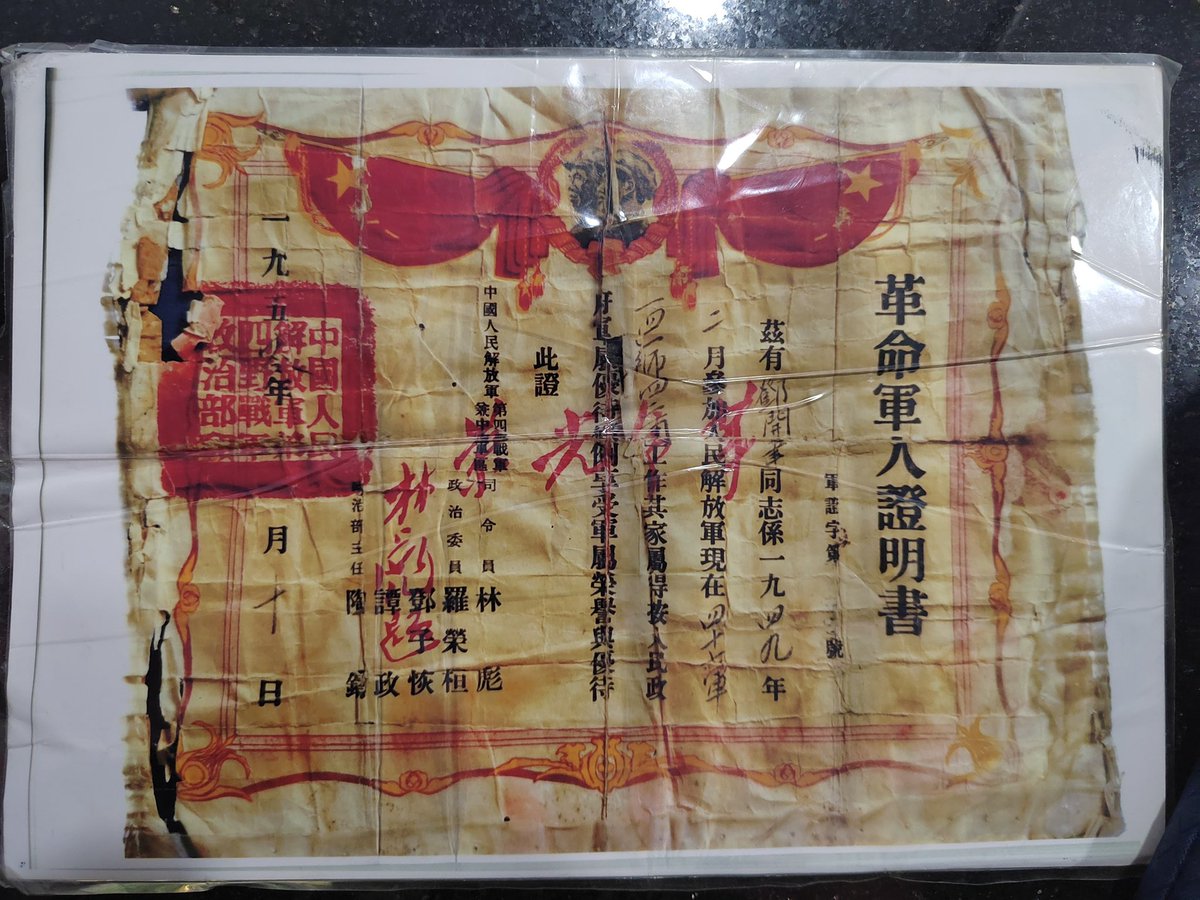 革命軍人證明書
軍證字第 號
茲有鄧開軍同志係一九四九年
二月參加人民解放軍現在四十七軍
一四一師四 工作其家屬得按人民政
府軍屬優待條例享受軍屬榮譽與優待
此證
中國人民解放軍第四野戰軍兼中南軍區司令員林彪
政治委員羅榮桓
鄧子恢
譚政
政治部主任陶鑄
一九五 年 月十日
中國人民
解放軍第
四野戰軍
政治部
光榮